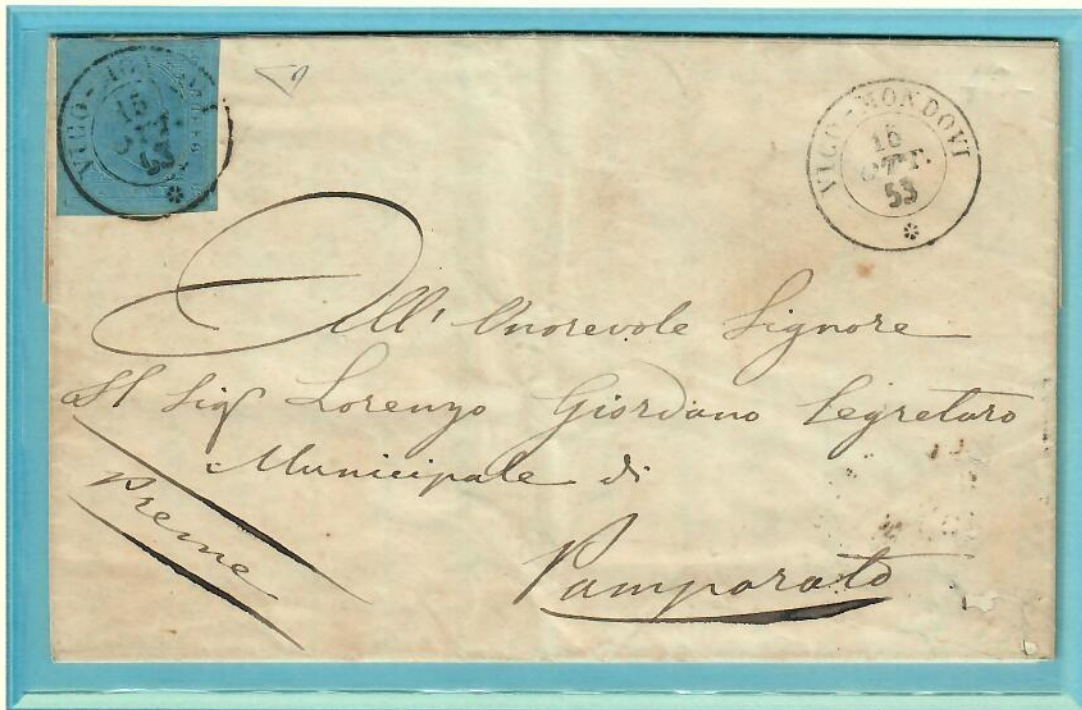 VICO-MONDOVI
15
OTT.
53
VICO-MONDOVI
15
OTT.
53
All' Onorevole Signore
Al Sig Lorenzo Giordano Segretaro
Municipale di
Preme
Pamparato